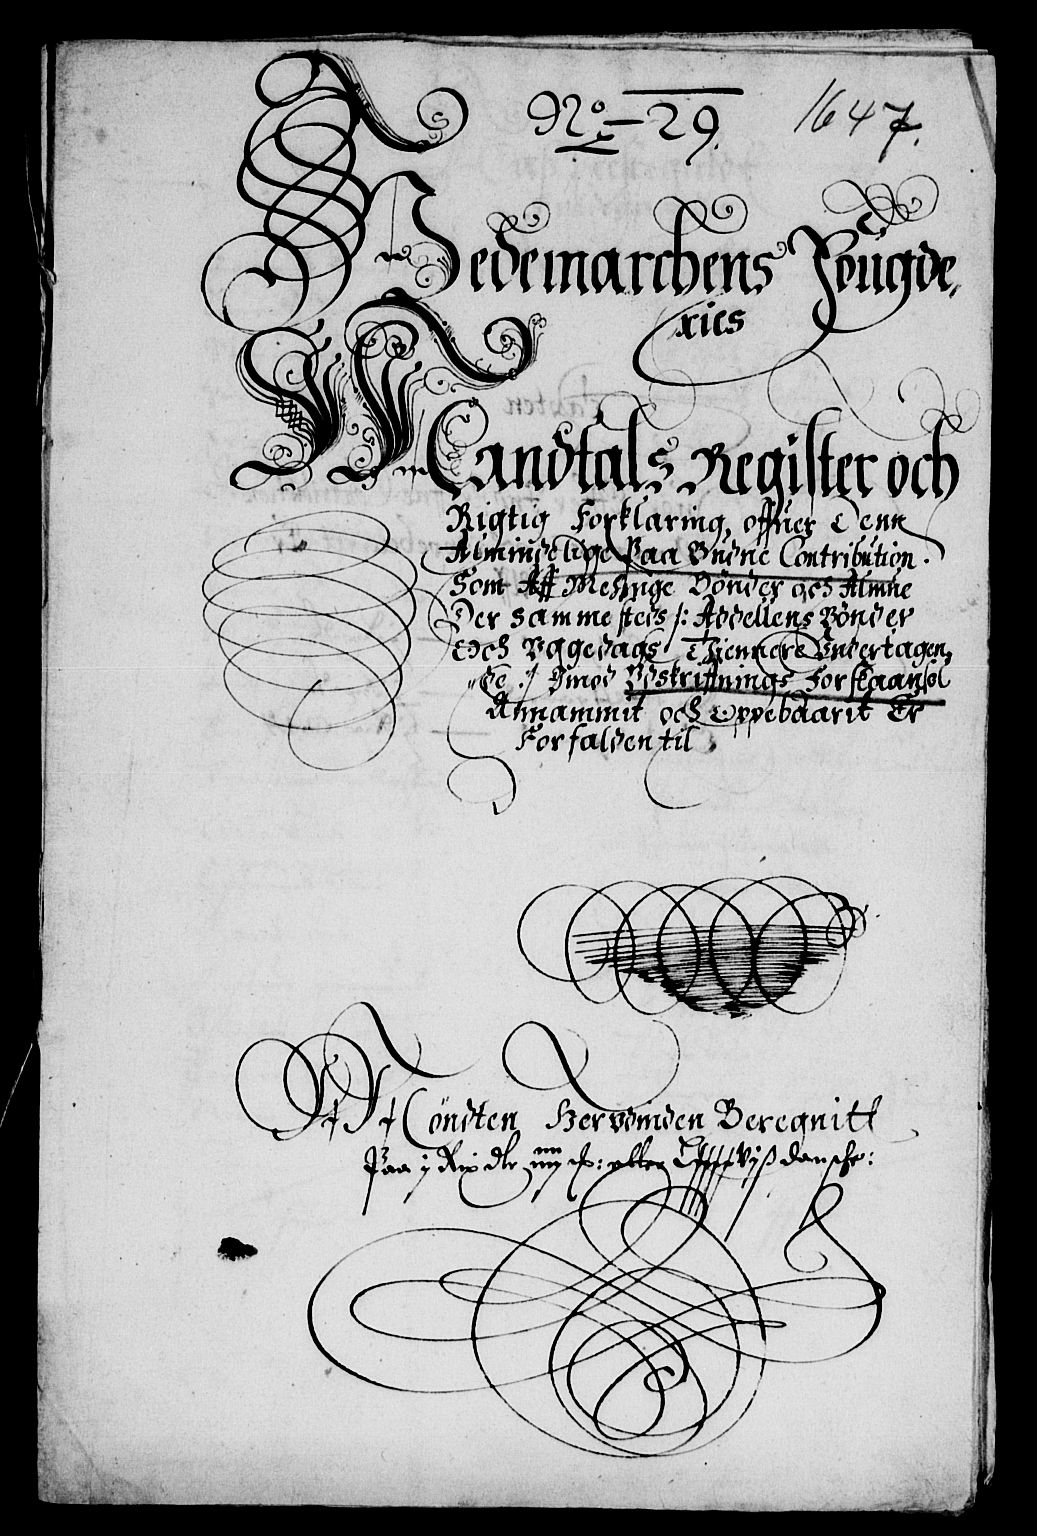 No 29. 1647.
Hedemarchens Fougde-
ries
Mandtals Register och
Rigtig Forklaring, offuer Denn
Almindelige Paa Budne Contribution.
Som Aff Menige Bønder och Almue
Der Sammesteds /: Addellens Bønder
Och Vggedags Thiennere Vndertagen,
de :/ Imod Vdskriffnings Forskaansel
Annammit och Oppebaarit Er
Forfalden til
Confften Her vdinden Beregnitt
Paa j Rix dlr danske: